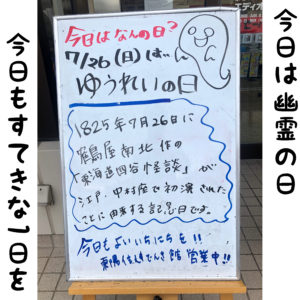 今日は幽霊の日
今日はなんの日？
7/26(日)は…
ゆうれいの日
1825年7月26日に
鶴屋南北作の
「東海道四谷怪談」が
江戸・中村座で初演された
ことに由来する記念日です。
今日もよいいちにちを!!
営業中!!
今日もすてきな1日を